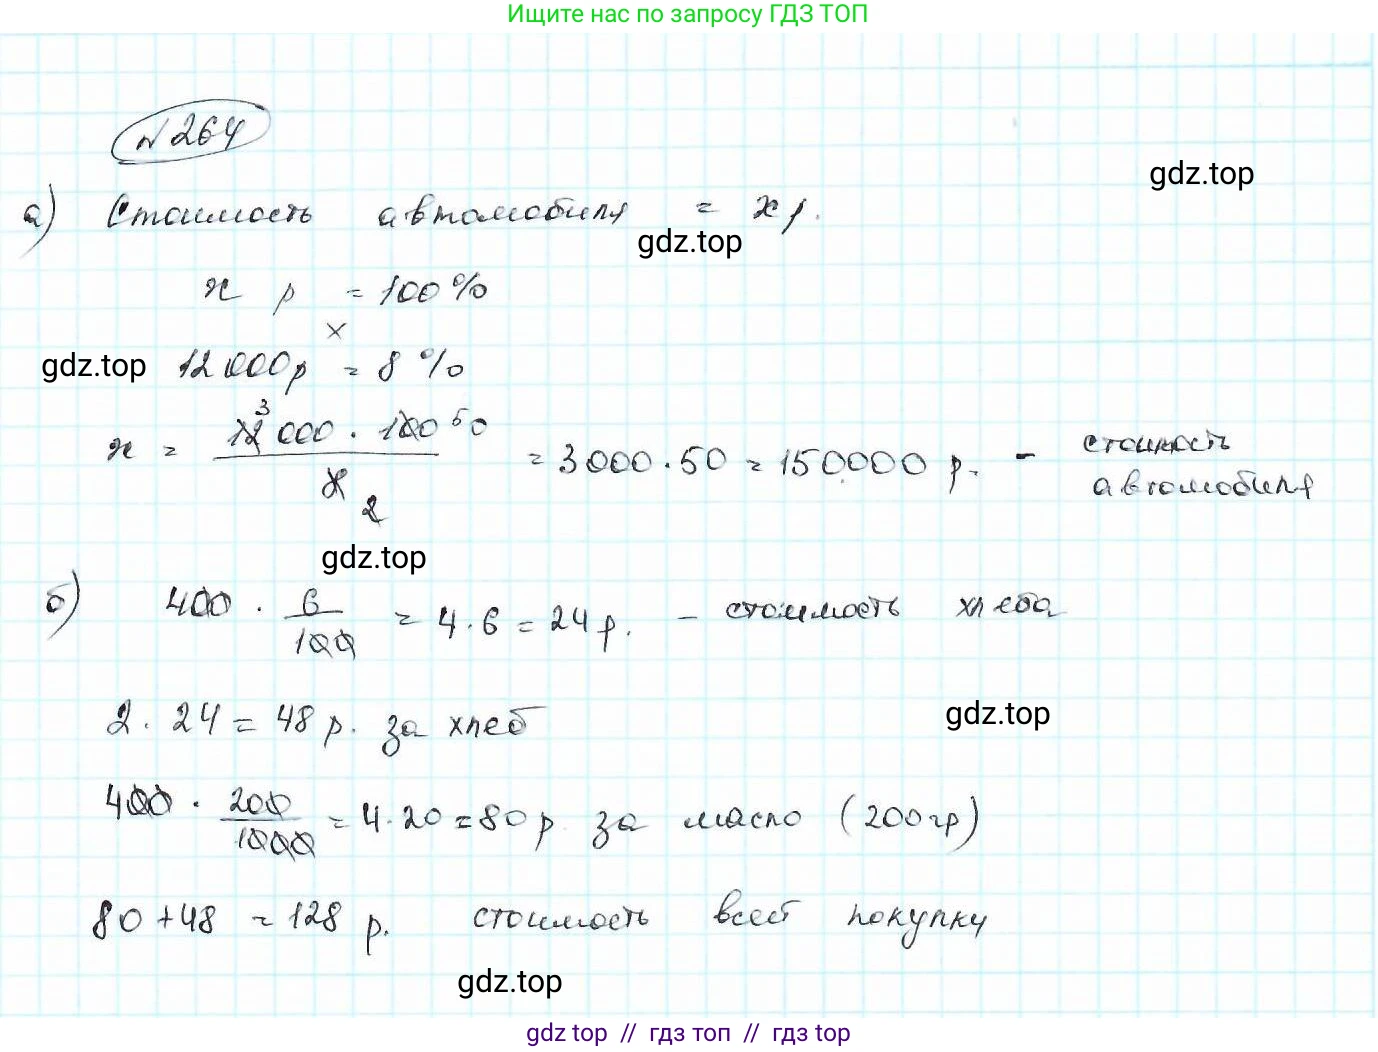 Ищите нас по запросу ГДЗ ТОП
№264
gdz.top
а) Стоимость автомобиля = х р.
gdz.top
х р = 100%
х
gdz.top
12000р = 8%
х = 12 3 000 · 100 50 / 8 2 = 3000·50 = 150000 р. - стоимость автомобиля
gdz.top
б) 400 · 6/100 = 4·6 = 24 р. - стоимость хлеба
2·24 = 48 р. за хлеб
gdz.top
400 · 200/1000 = 4·20 = 80 р за масло (200гр)
80+48 = 128 р. стоимость всей покупку
gdz.top
gdz top // гдз топ // гдз top